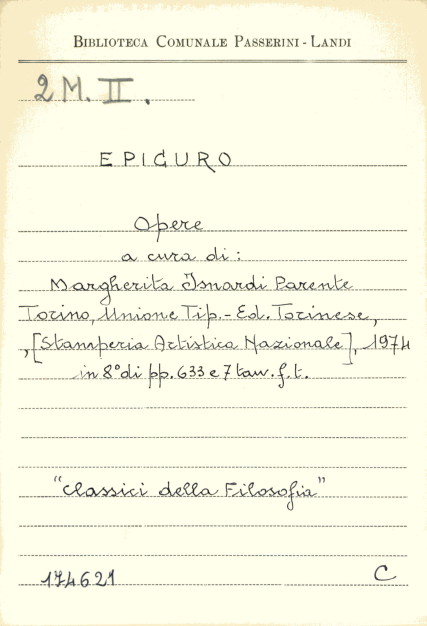 BIBLIOTECA COMUNALE PASSERINI-LANDI
2 M. II.
EPICURO
Opere
a cura di:
Margherita Isnardi Parente
Torino, Unione Tip.-Ed. Torinese,
,[Stamperia Artistica Nazionale], 1974
in 8° di pp. 633 e 7 tav. f. t.
"Classici della Filosofia"
174621 C